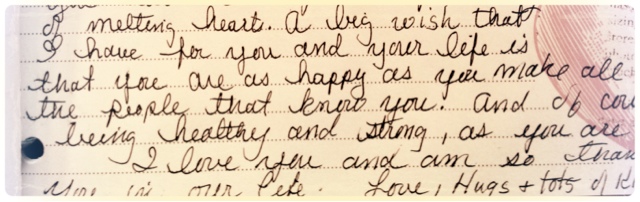 of melting heart. A big wish that
I have for you and your life is
that you are as happy as you make all
the people that know you. And of
being healthy and strong, as you are
I love you and am so
you in our life. Love, Hugs + lots of